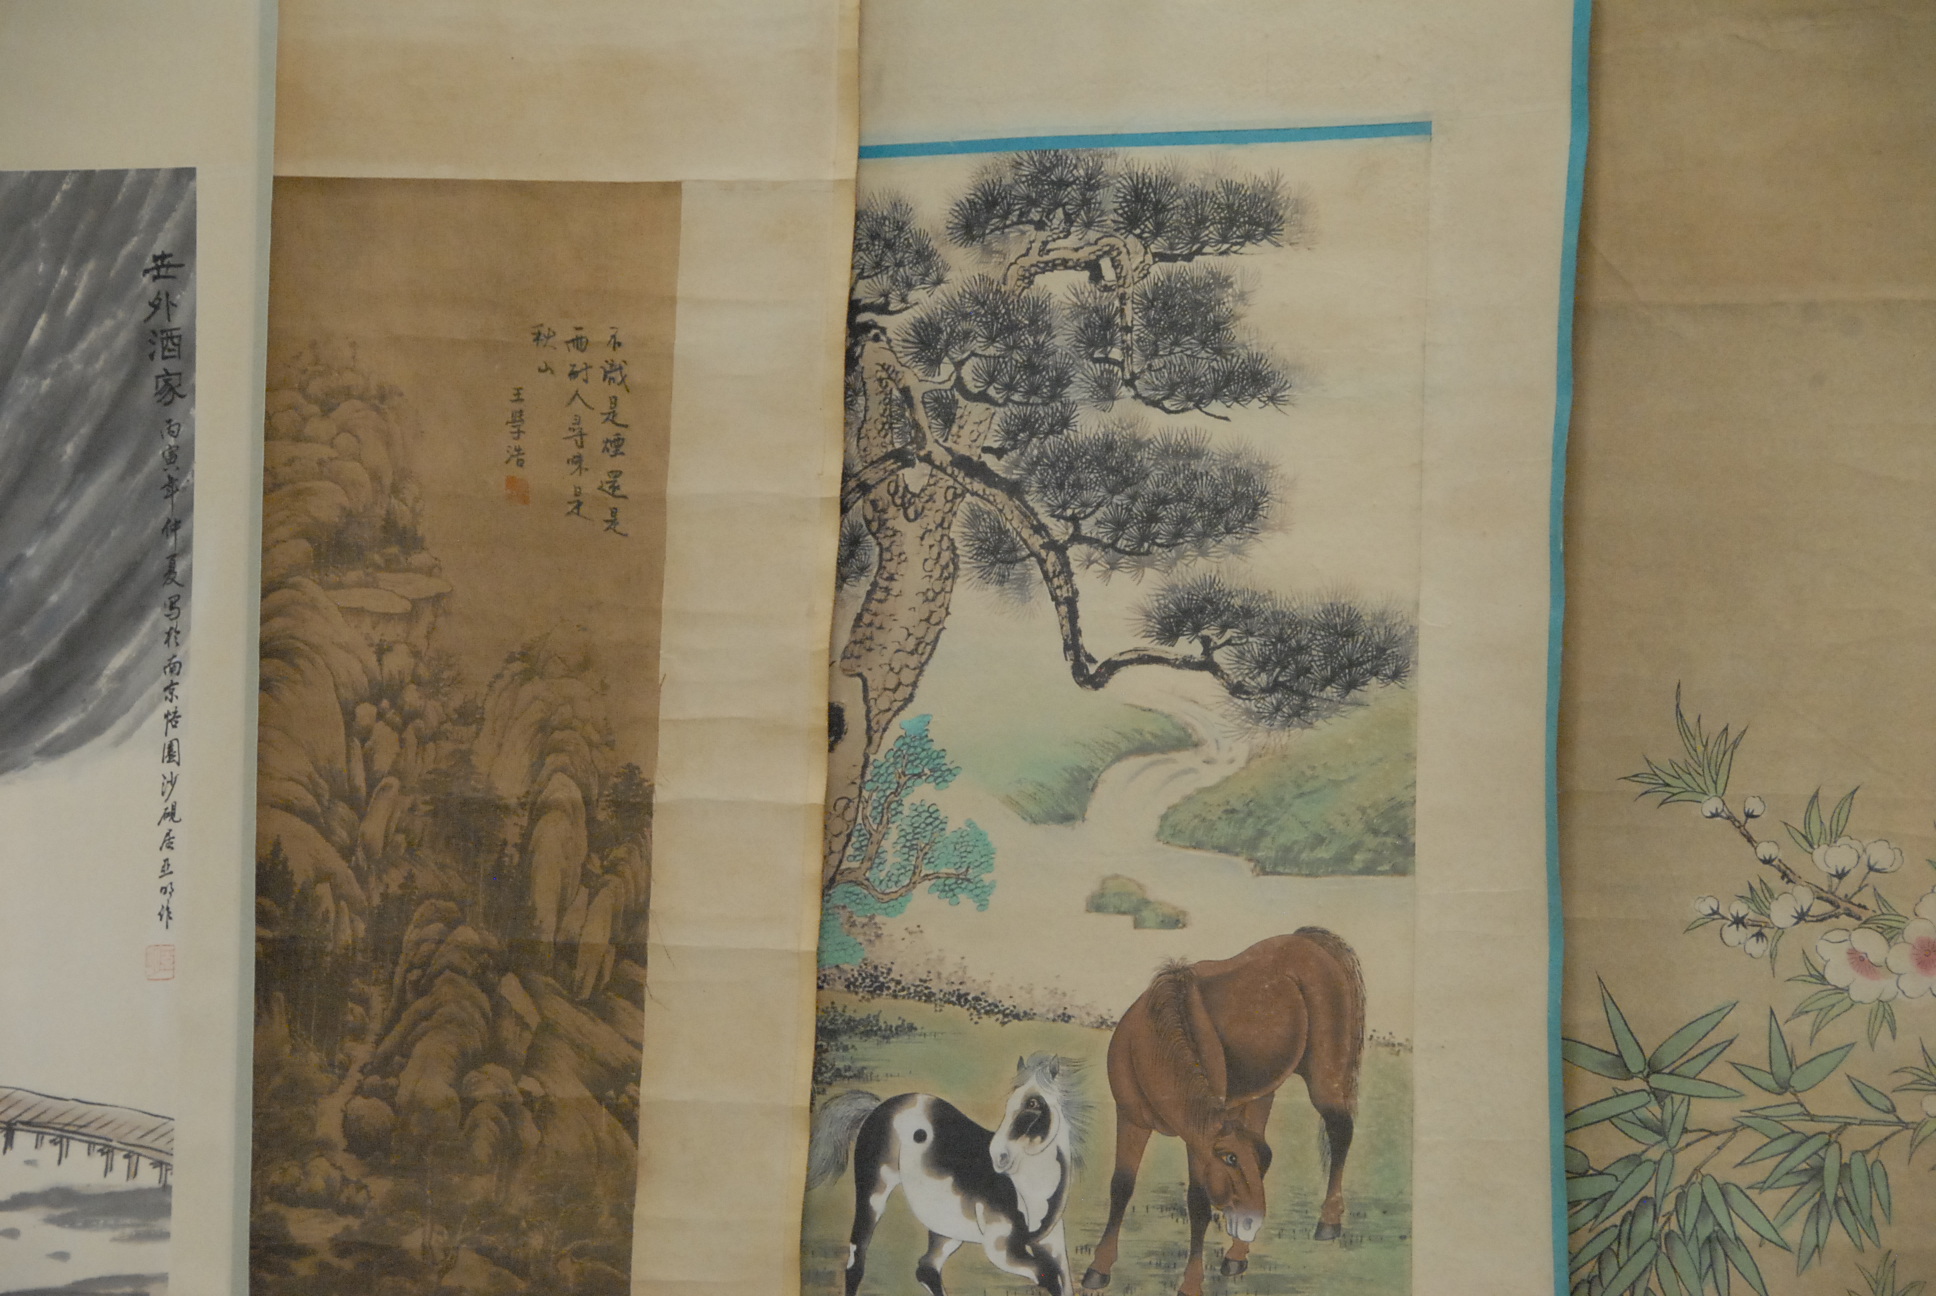 世外酒家 丙寅年仲夏写於南京悟園沙砚居亚明作
不識是煙還是
雨耐人尋味是
秋山
王學浩